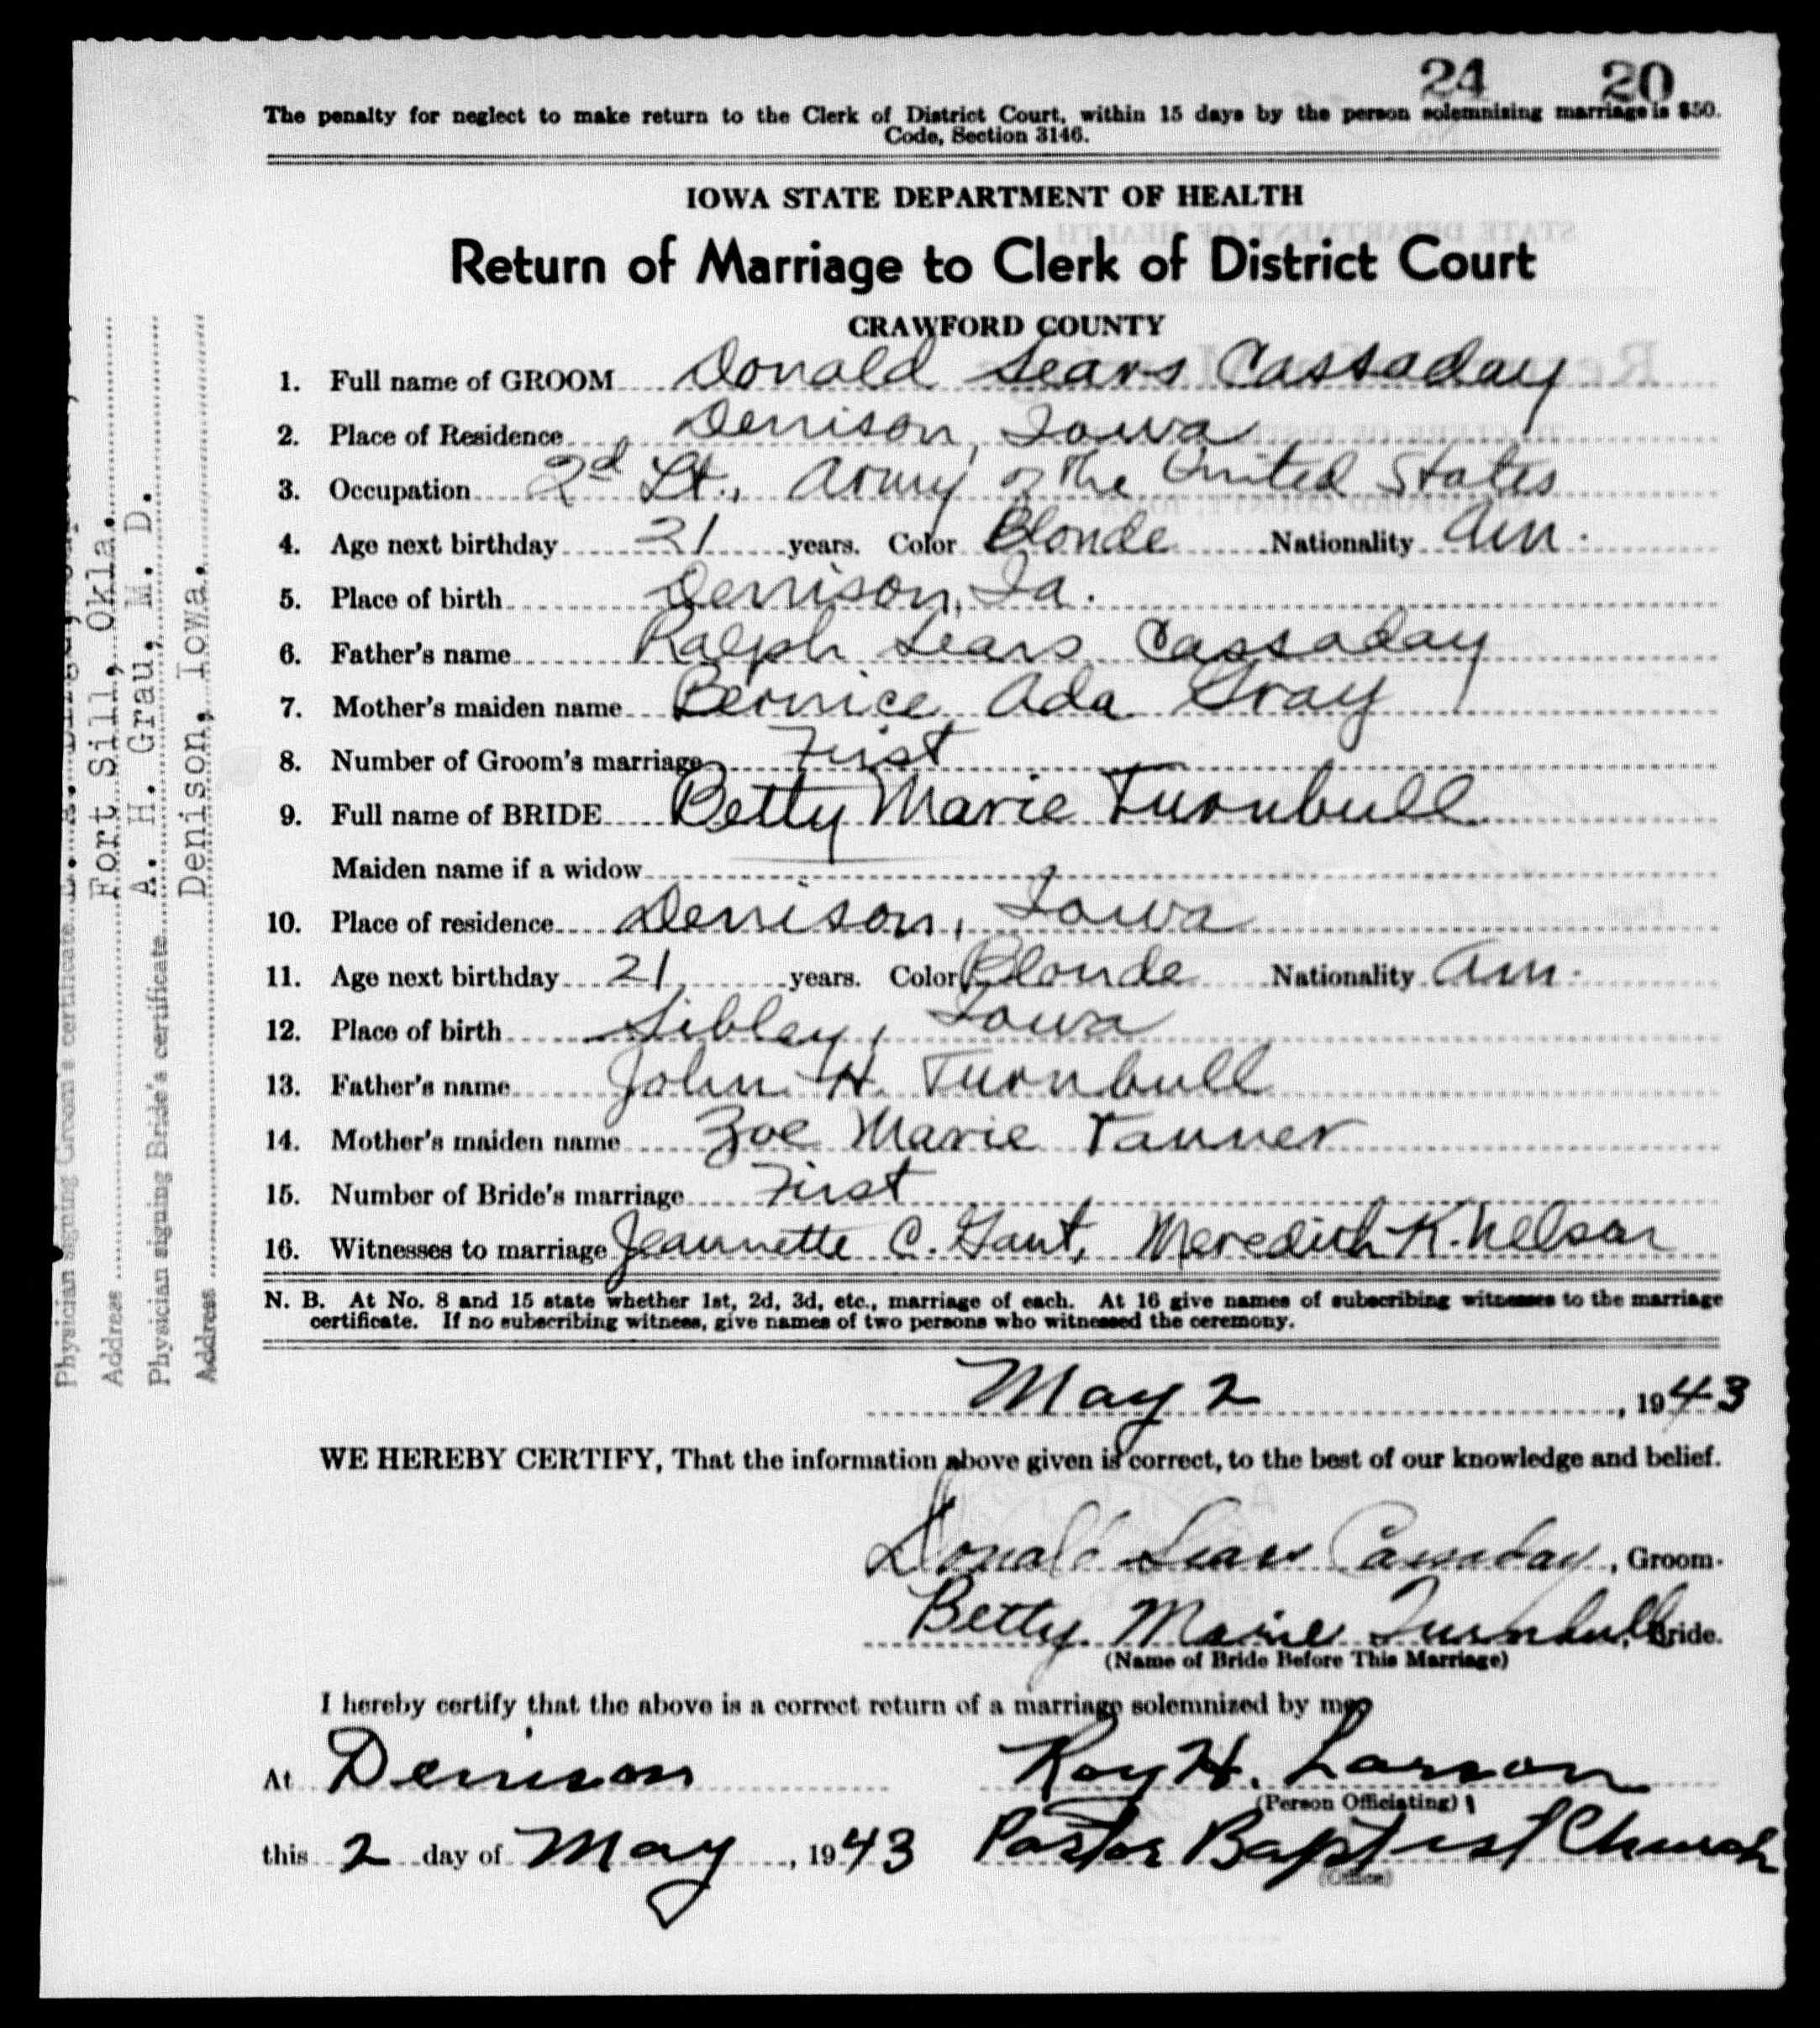 24 20
The penalty for neglect to make return to the Clerk of District Court, within 15 days by the person solemnizing marriage is $50.
Code, Section 3146.
IOWA STATE DEPARTMENT OF HEALTH
Return of Marriage to Clerk of District Court
CRAWFORD COUNTY
1. Full name of GROOM Donald Sears Cassaday
2. Place of Residence Denison, Iowa
3. Occupation 2d Lt., Army of the United States
4. Age next birthday 21 years. Color Blonde Nationality Am.
5. Place of birth Denison, Ia.
6. Father's name Ralph Sears Cassaday
7. Mother's maiden name Bernice Ada Gray
8. Number of Groom's marriage First
9. Full name of BRIDE Betty Marie Turnbull
Maiden name if a widow
10. Place of residence Denison, Iowa
11. Age next birthday 21 years. Color Blonde Nationality Am.
12. Place of birth Sibley, Iowa
13. Father's name John H. Turnbull
14. Mother's maiden name Zoe Marie Tanner
15. Number of Bride's marriage First
16. Witnesses to marriage Jeannette C. Gant, Meredith K. Nelson
N. B. At No. 8 and 15 state whether 1st, 2d, 3d, etc., marriage of each. At 16 give names of subscribing witnesses to the marriage
certificate. If no subscribing witness, give names of two persons who witnessed the ceremony.
May 2, 1943
WE HEREBY CERTIFY, That the information above given is correct, to the best of our knowledge and belief.
Donald Sears Cassaday, Groom.
Betty Marie Turnbull, Bride.
(Name of Bride Before This Marriage)
I hereby certify that the above is a correct return of a marriage solemnized by me
At Denison Roy H. Larson
(Person Officiating)
this 2 day of May, 1943 Pastor Baptist Church
(Office)
Physician signing Groom's certificate
Address Fort Sill, Okla.
Physician signing Bride's certificate A. H. Grau, M. D.
Address Denison, Iowa.